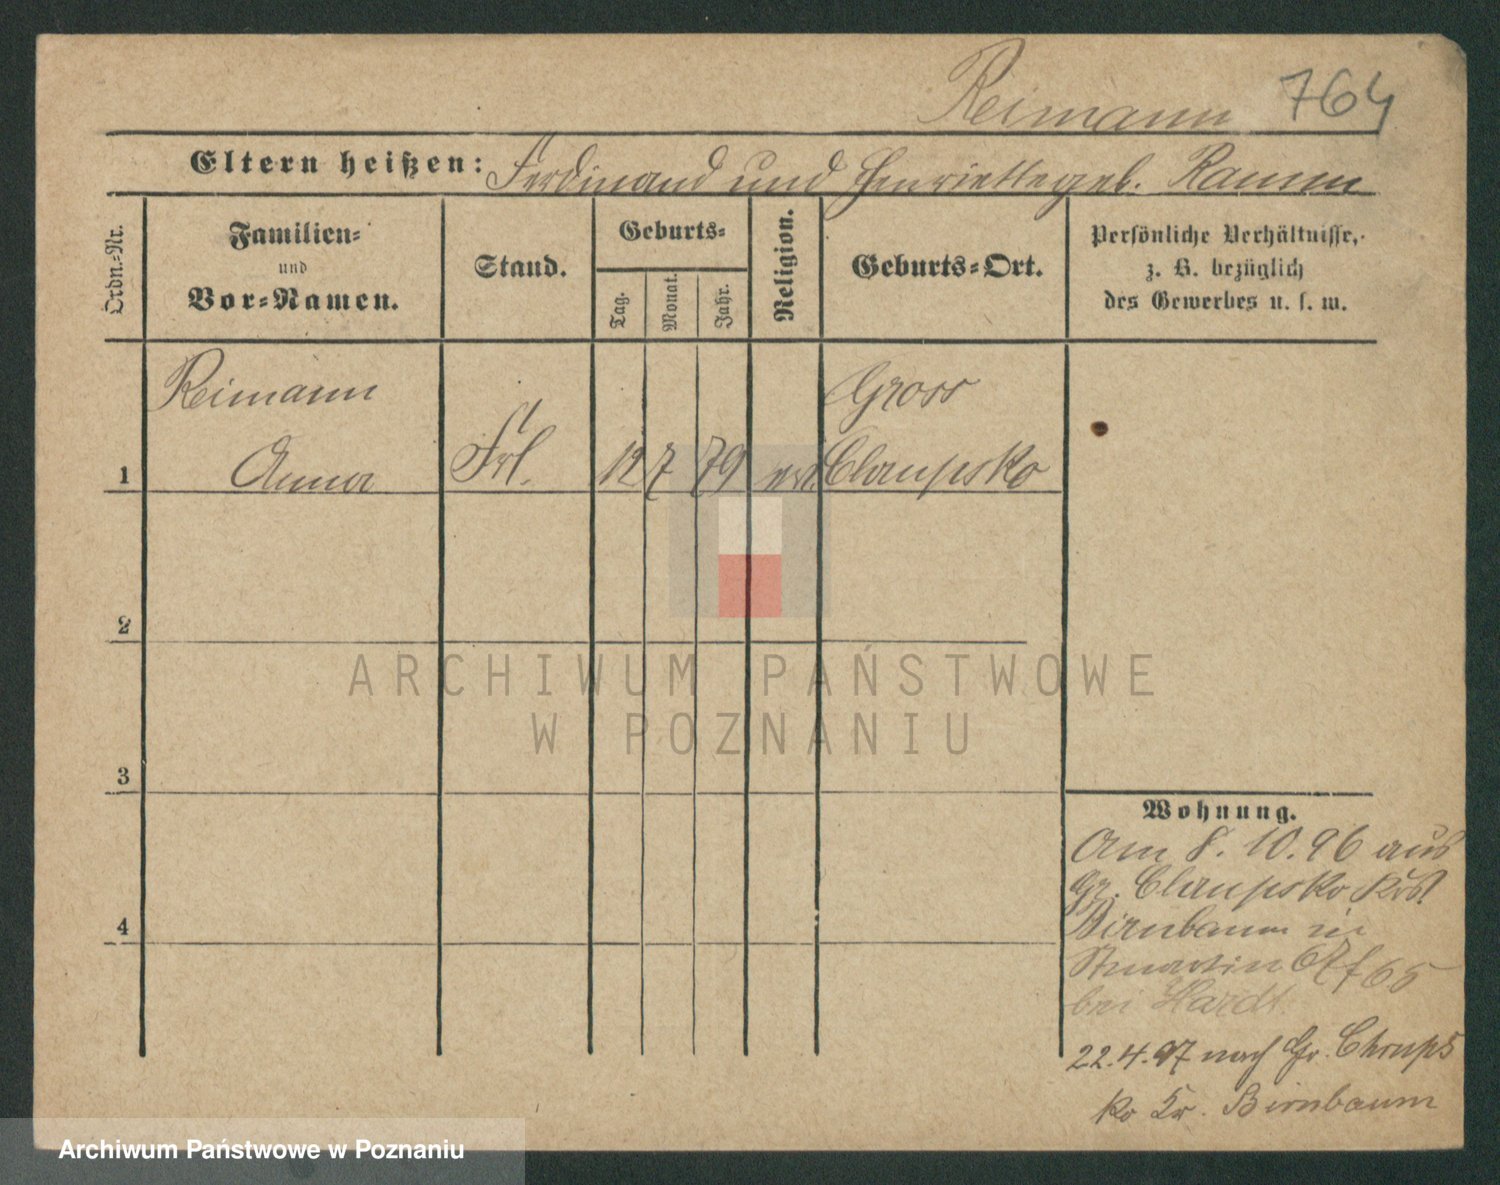 Reimann 764
Eltern heißen: Ferdinand und Henriette geb. Ramm
Ordn.-Nr.
Familien-
und
Vor-Namen.
Stand.
Geburts-
Tag.
Monat.
Jahr.
Religion.
Geburts-Ort.
Persönliche Verhältnisse,
z. B. bezüglich
des Gewerbes u. s. w.
Reimann Gross
1 Anna Frl. 12 7 79 ev. Chrupsko
2
3
4
Wohnung.
Am 8. 10. 96 aus
Gr. Chrupsko Krs
Birnbaum in
St martin 65
bei Hardt
22.4.97 nach Gr. Chrups
ko Kr. Birnbaum
ARCHIWUM PAŃSTWOWE
W POZNANIU
Archiwum Państwowe w Poznaniu